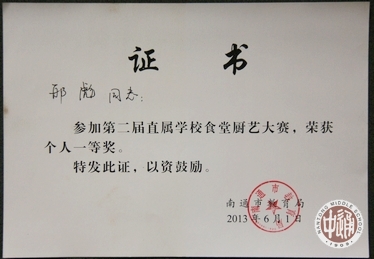 证书
邢彪 同志:
参加第二届直属学校食堂厨艺大赛，荣获
个人一等奖。
特发此证，以资鼓励。
南通市教育局
2013年6月1日
南通市教育局
NANTONG MIDDLE SCHOOL
中通
1909